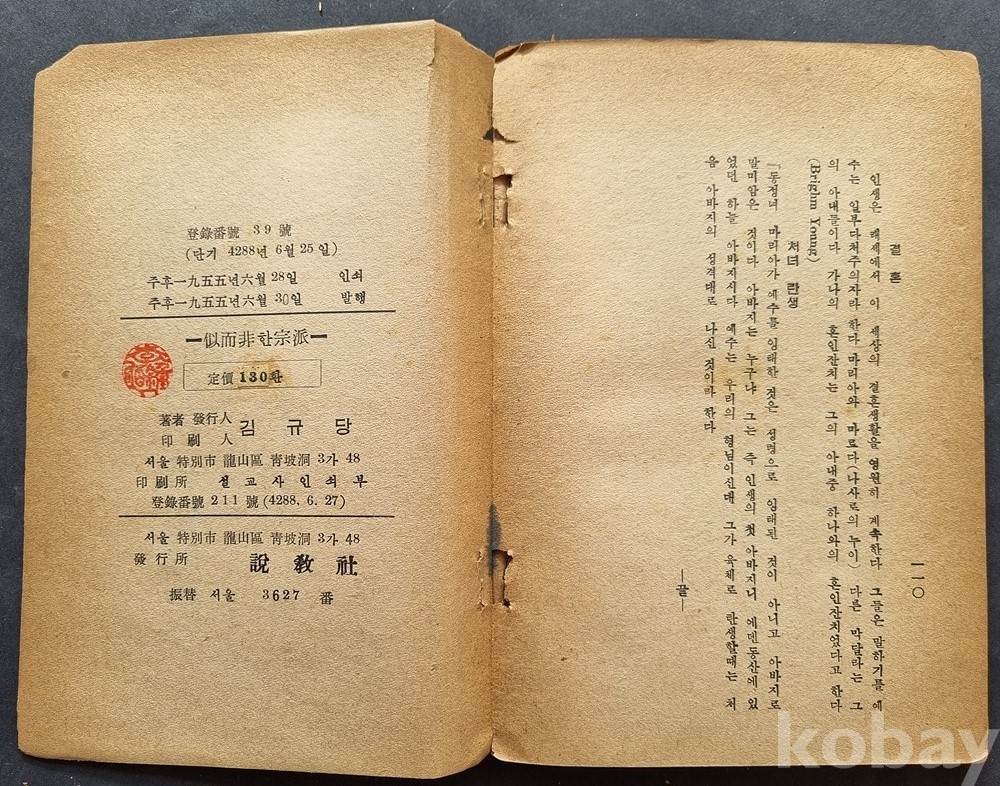 一一〇
결 혼
인생은 래세에서 이 세상의 결혼생활을 영원히 계속한다 그들은 말하기를 예
수는 일부다처주의자라 한다 마리아와 마르다(나사로의 누이) 다른 막달라는 그
의 아내들이다 가나의 혼인잔치는 그의 아내중 하나와의 혼인잔치었다고 한다
(Brighm Young)
처녀 탄생
「동정녀 마리아가 예수를 잉태한 것은 성령으로 잉태된 것이 아니고 아바지로
말미암은 것이다 아바지는 누구냐 그는 즉 인생의 첫 아바지니 에덴동산에 있
었던 하늘 아바지시다 예수는 우리의 형님이신대 그가 육체로 탄생할때는 처
음 아바지의 성격대로 나신 것이라 한다
—끝—
登錄番號 39 號
(단기 4288년 6월 25일)
주후一九五五년六월 28일 인쇄
주후一九五五년六월 30일 발행
━似而非한宗派━
定價 130환
著者 發行人
印刷人
김 규 당
서울 特別市 龍山區 靑坡洞 3가 48
印刷所 설교사인쇄부
登錄番號 211 號 (4288. 6. 27)
서울 特別市 龍山區 靑坡洞 3가 48
發行所 說敎社
振替 서울 3627 番
kobay